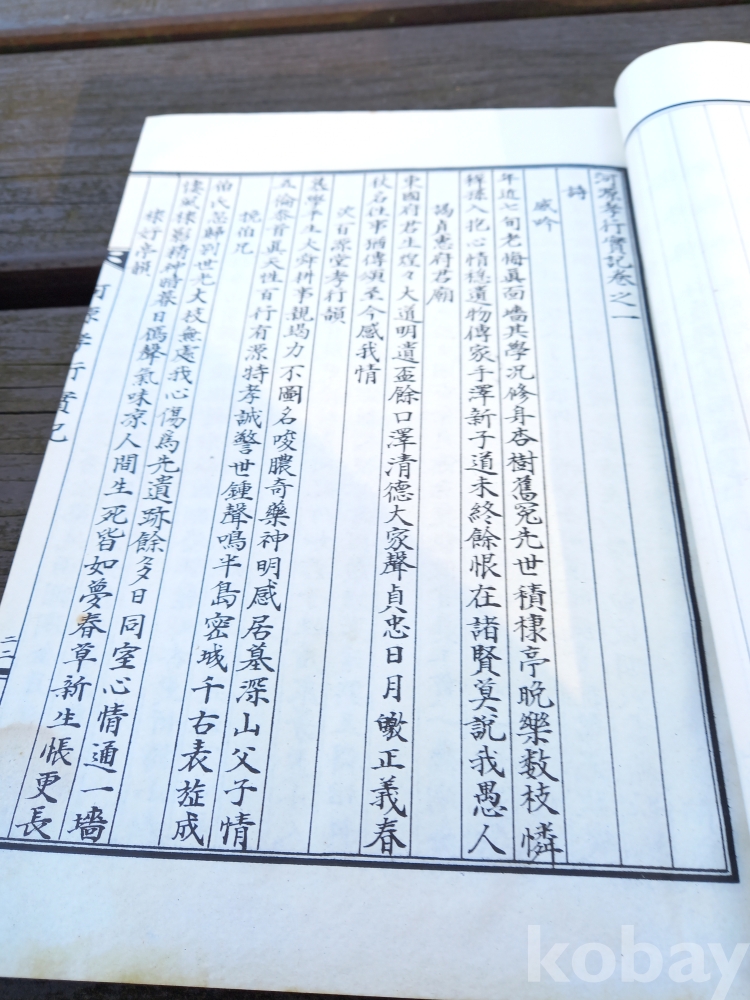 河源孝行實記卷之一
詩
感吟
年近七旬老悔眞面墻其學况修身杏樹舊寃先世積棣亭晩樂数枝憐
稺孫入抱心情穩遺物傳家手澤新子道未終餘恨在諸賢莫說我愚人
謁貞惠府君廟
東國府君生煌々大道明遺盃餘口澤清德大家聲貞忠日月皦正義春
秋名往事猶傳頌至今感我情
次百源堂孝行韻
慕學平生大舜耕事親竭力不圖名唆膿奇藥神明感居墓深山父子情
五倫泰首眞天性百行有源特孝誠警世鍾聲鳴半島密城千右表㫌成
挽伯兄
伯氏忽歸別世光大枝無處我心傷烏先遺跡餘多日同室心情通一墻
悽風棣影精神暗暮日鴈聲氣味凉人間生死皆如夢春草新生悵更長
棣好亭韻
河源孝行實記
二二
kobay